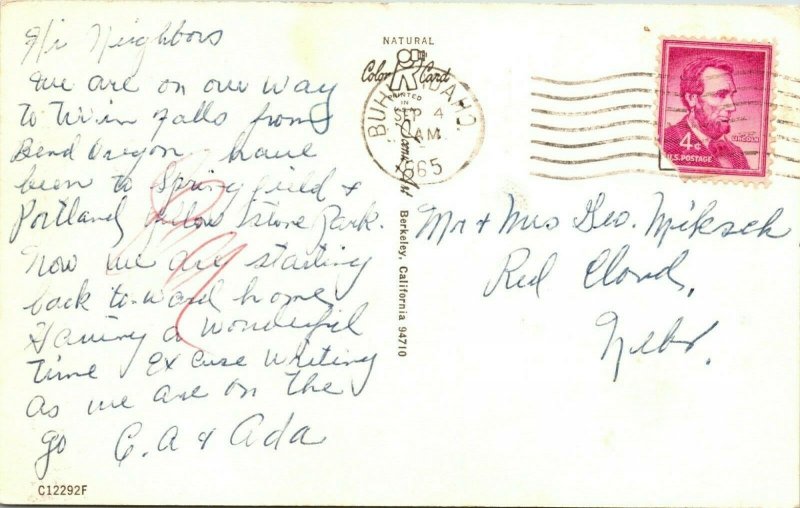 Hi Neighbors
We are on our way
to Twin Falls from
Bend Oregon have
been to Springfield &
Portland, Yellow Stone Park.
Now we are starting
back to-ward home
Having a wonderful
time Excuse writing
as we are on the
go C.A & Ada
C12292F
NATURAL
Color Card
PRINTED
IN
Berkeley, California 94710
BUHL IDAHO
SEP 4
AM
1965
LINCOLN
4¢
U.S. POSTAGE
Mr & Mrs Geo. Miksch
Red Cloud,
Nebr.